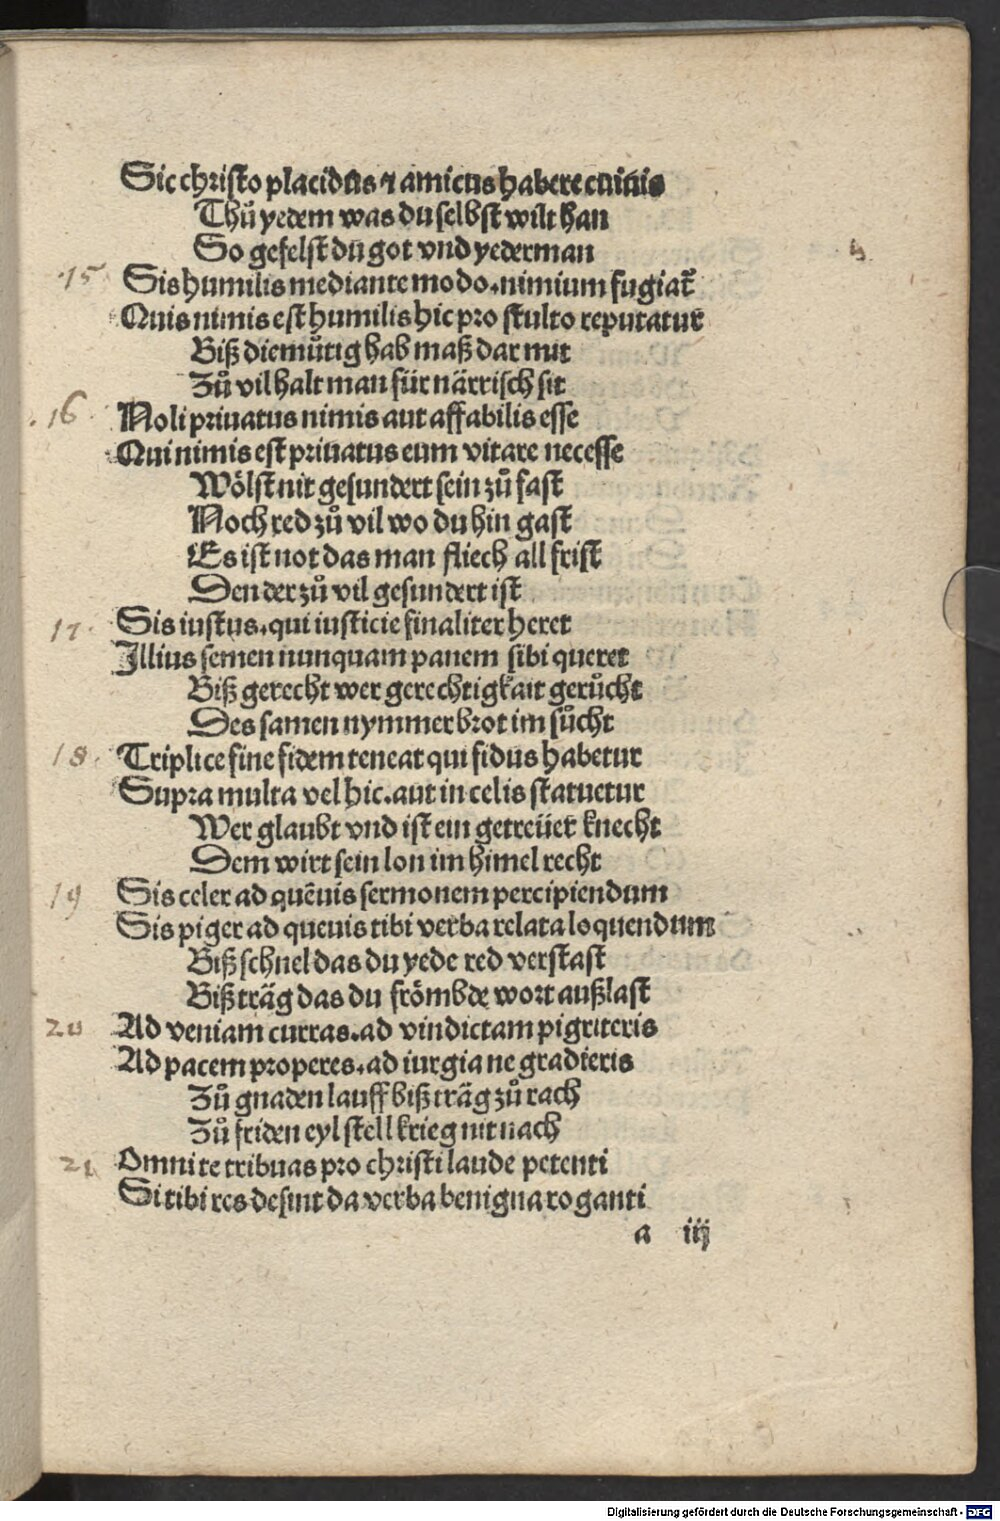 Sic christo placidus ⁊ amicus habere cuiuis
Thů yedem was du selbst wilt han
So gefelst du got vnd yederman
15 Sis humilis mediante modo. nimium fugiat᷑
Quis nimis est humilis hic pro stulto reputatur
Biß diemůtig hab maß dar mit
Zů vil halt man für närrisch sit
16 Noli priuatus nimis aut affabilis esse
Qui nimis est priuatus eum vitare necesse
Wölst nit gesundert sein zů fast
Noch red zů vil wo du hin gast
Es ist not das man fliech all frist
Den der zů vil gesundert ist
17 Sis iustus. qui iusticie finaliter heret
Illius semen nunquam panem sibi queret
Biß gerecht wer gerechtigkait gerůcht
Des samen nymmer brot im sůcht
18 Triplice fine fidem teneat qui fidus habetur
Supra multa vel hic. aut in celis statuetur
Wer glaubt vnd ist ein getreüer knecht
Dem wirt sein lon im himel recht
19 Sis celer ad quēuis sermonem percipiendum
Sis piger ad queuis tibi verba relata loquendum
Biß schnel das du yede red verstast
Biß träg das du frömbde wort außlast
20 Ad veniam curras. ad vindictam pigriteris
Ad pacem properes. ad iurgia ne gradieris
Zů gnaden lauff biß träg zů rach
Zů friden eyl stell krieg nit nach
21 Omni te tribuas pro christi laude petenti
Si tibi res desint da verba benigna roganti
a iij
Digitalisierung gefördert durch die Deutsche Forschungsgemeinschaft - DFG